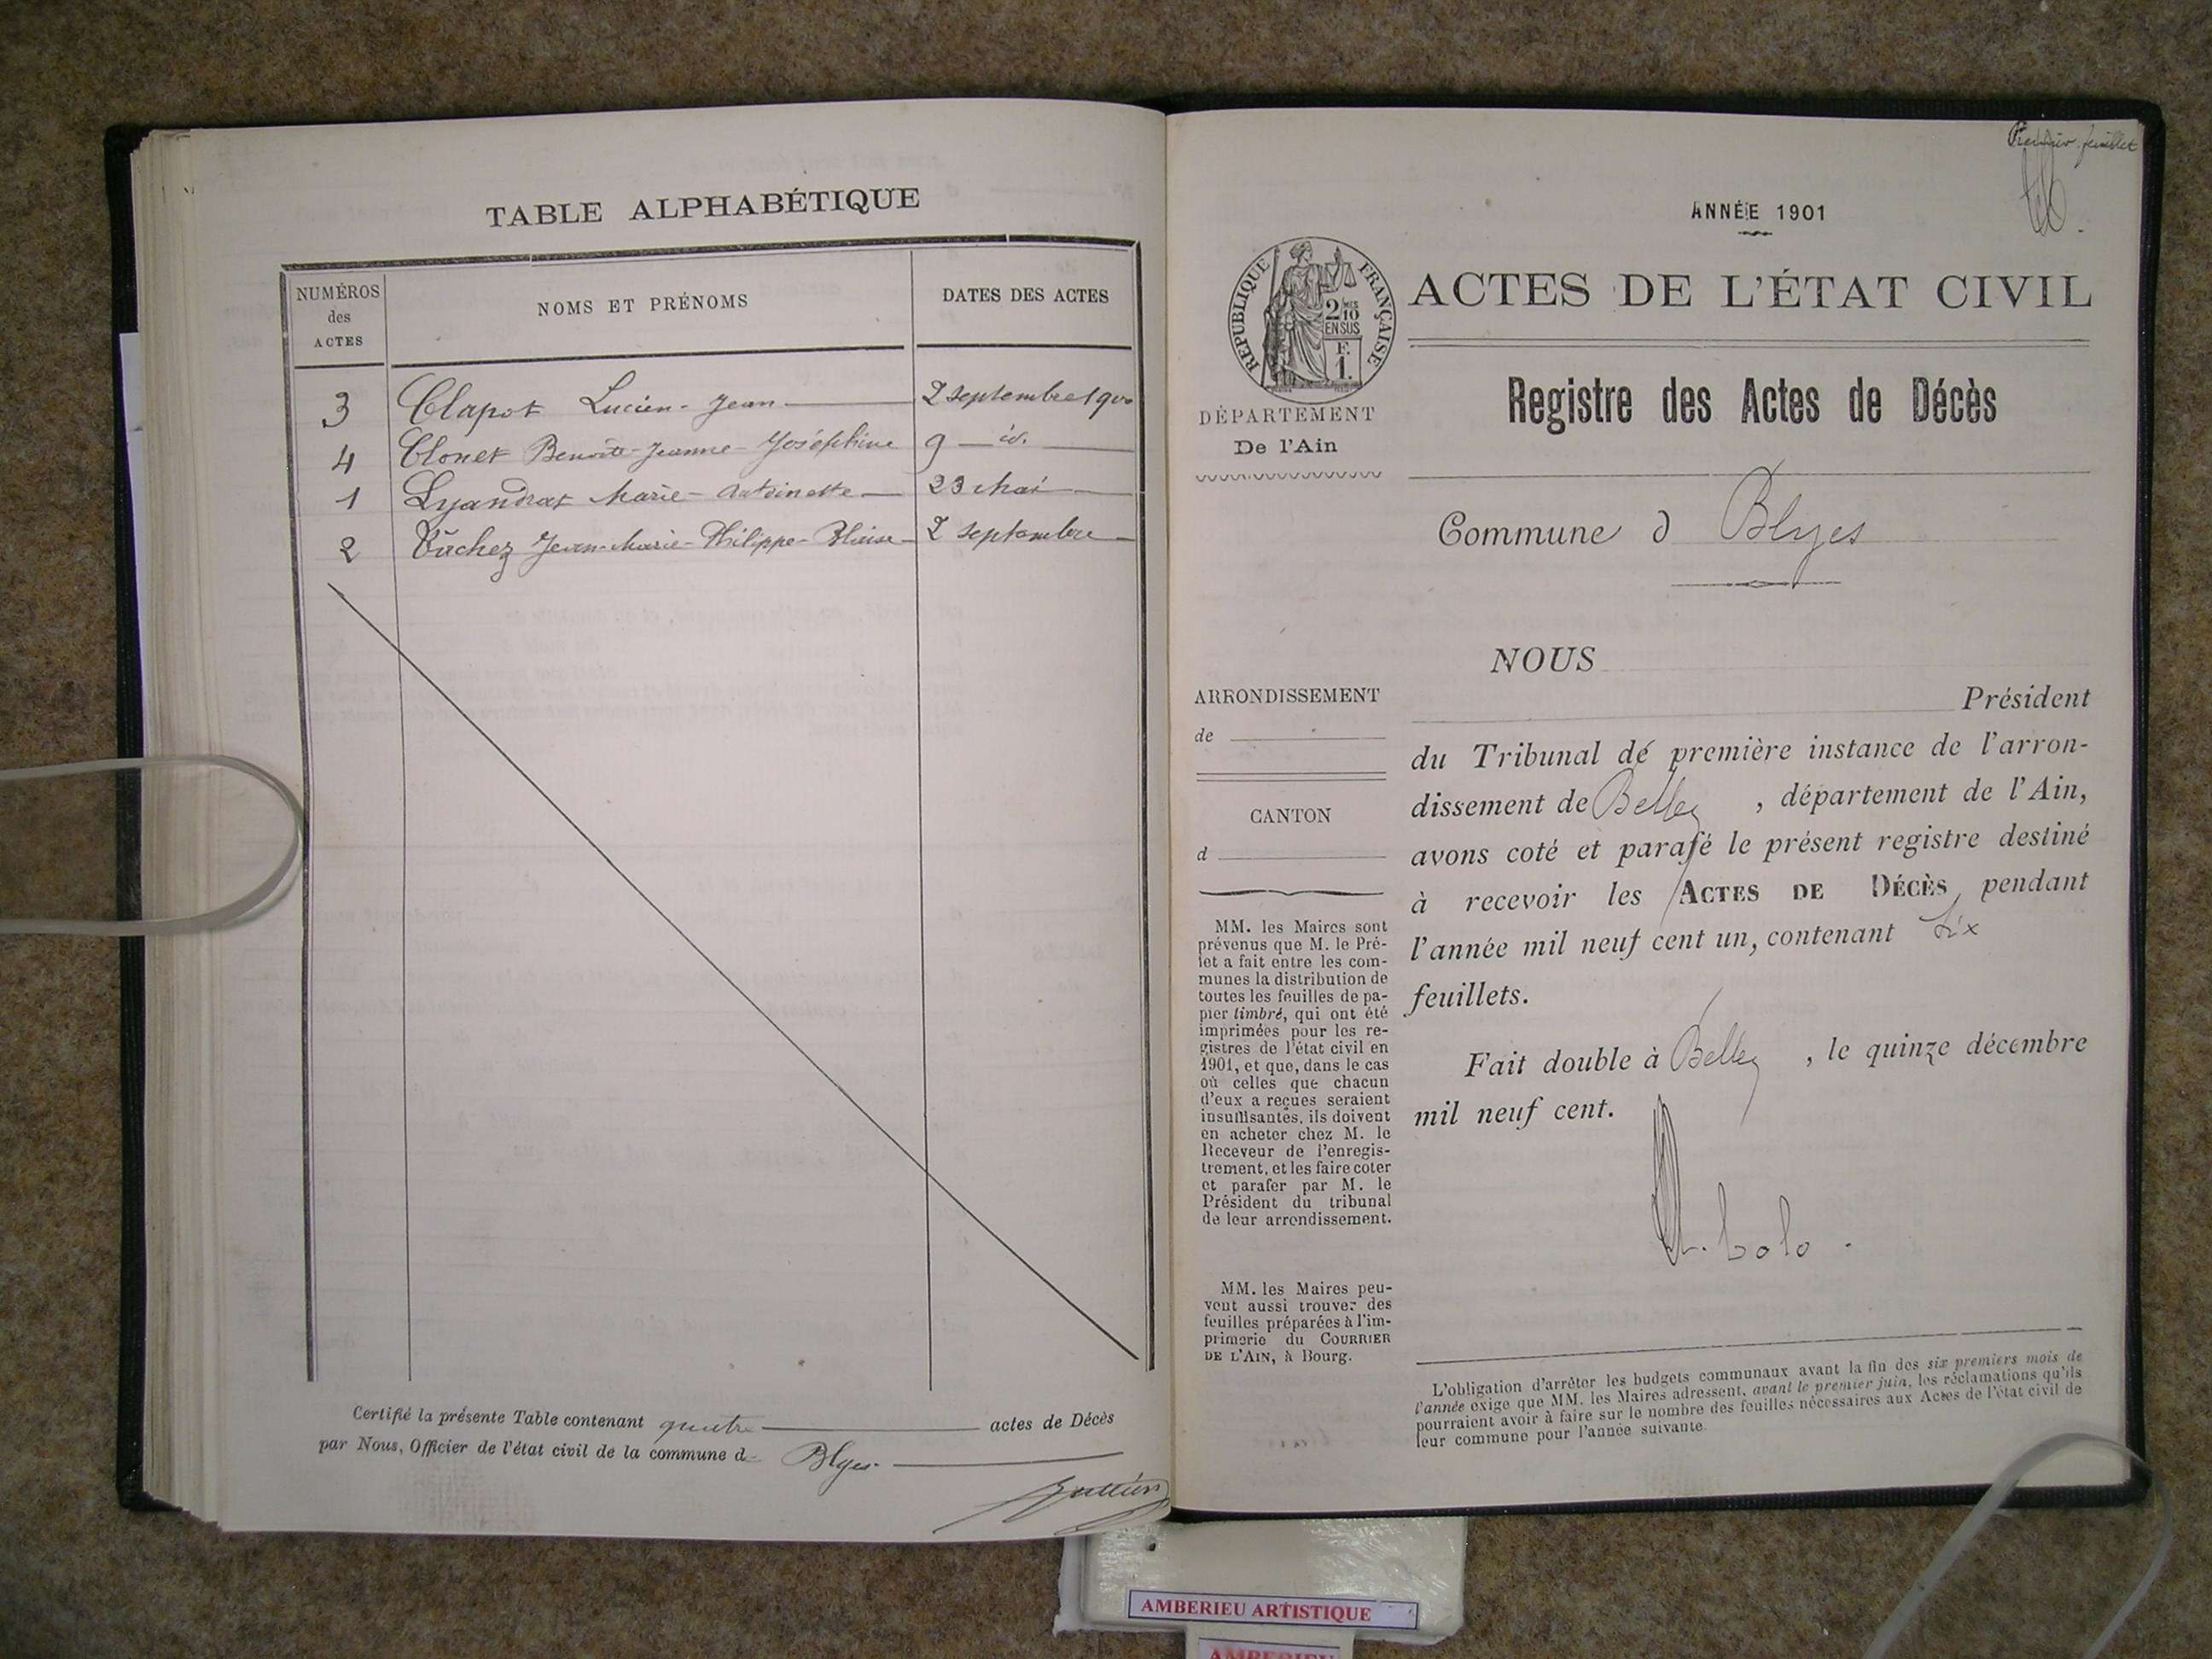 TABLE ALPHABÉTIQUE
NUMÉROS
des
ACTES
NOMS ET PRÉNOMS
DATES DES ACTES
3 Clapot Lucien-Jean 2 septembre 1900
4 Clonet Benoîte-Jeanne-Joséphine 9 id.
1 Lyandrat Marie-Antoinette 23 Mai
2 Vachez Jean-Marie-Philippe- 2 septembre
Certifié la présente Table contenant quatre actes de Décès
par Nous, Officier de l'état civil de la commune d Blyes
Premier feuillet
ANNÉE 1901
RÉPUBLIQUE FRANÇAISE
2/10
EN SUS
F.
1.
ACTES DE L'ÉTAT CIVIL
DÉPARTEMENT
De l'Ain
Registre des Actes de Décès
Commune d Blyes
ARRONDISSEMENT
de
CANTON
d
MM. les Maires sont
prévenus que M. le Pré-
fet a fait entre les com-
munes la distribution de
toutes les feuilles de pa-
pier timbré, qui ont été
imprimées pour les re-
gistres de l'état civil en
1901, et que, dans le cas
où celles que chacun
d'eux a reçues seraient
insuffisantes, ils doivent
en acheter chez M. le
Receveur de l'enregis-
trement, et les faire coter
et parafer par M. le
Président du tribunal
de leur arrondissement.
MM. les Maires peu-
vent aussi trouver des
feuilles préparées à l'im-
primerie du COURRIER
DE L'AIN, à Bourg.
NOUS
Président
du Tribunal de première instance de l'arron-
dissement de Belley, département de l'Ain,
avons coté et parafé le présent registre destiné
à recevoir les ACTES DE DÉCÈS pendant
l'année mil neuf cent un, contenant six
feuillets.
Fait double à Belley, le quinze décembre
mil neuf cent.
L'obligation d'arrêter les budgets communaux avant la fin des six premiers mois de
l'année exige que MM. les Maires adressent, avant le premier juin, les réclamations qu'ils
pourraient avoir à faire sur le nombre des feuilles nécessaires aux Actes de l'état civil de
leur commune pour l'année suivante.
AMBERIEU ARTISTIQUE
AMBERIEU